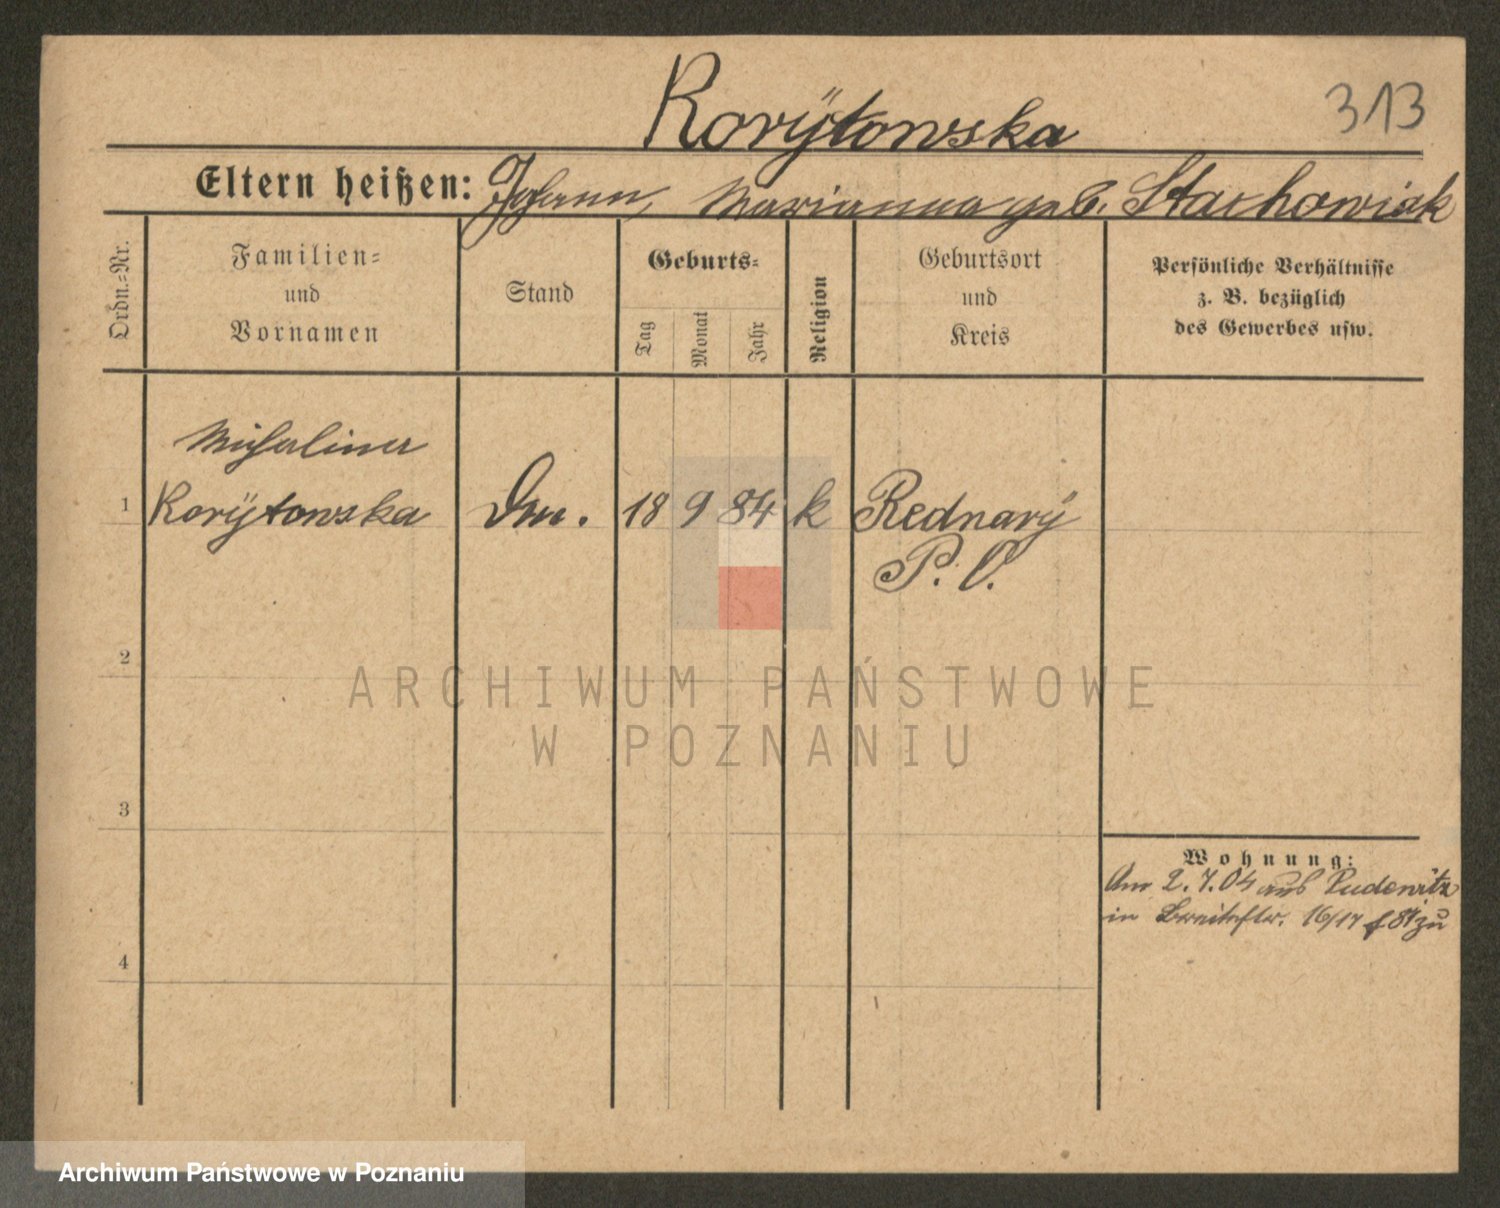 Korÿtowska
313
Eltern heißen: Johann, Marianna geb. Stachowiak
Ordn.-Nr.
Familien-
und
Vornamen
Stand
Geburts-
Tag
Monat
Jahr
Religion
Geburtsort
und
Kreis
Persönliche Verhältnisse
z. B. bezüglich
des Gewerbes usw.
Michalina
1 Korÿtowska 18 9 84 k Rednarÿ
P. O.
2
ARCHIWUM PAŃSTWOWE
W POZNANIU
3
Wohnung:
Am 2.7.04 aus Pudewitz
in Breitestr. 16/17 zu
4
Archiwum Państwowe w Poznaniu